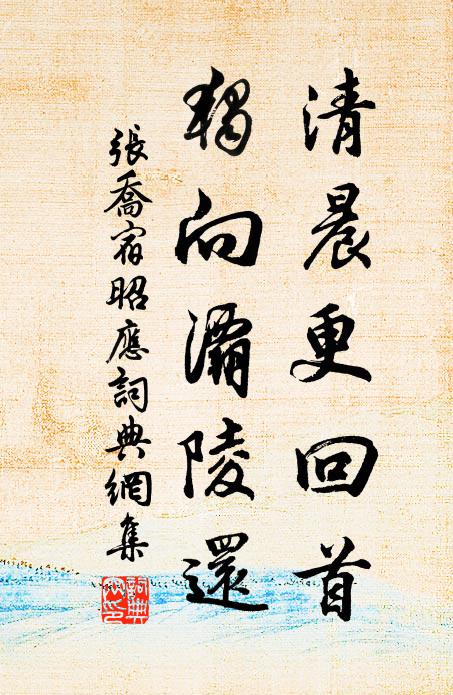 清晨更回首
獨向灞陵還
張喬宿昭應詞典網集